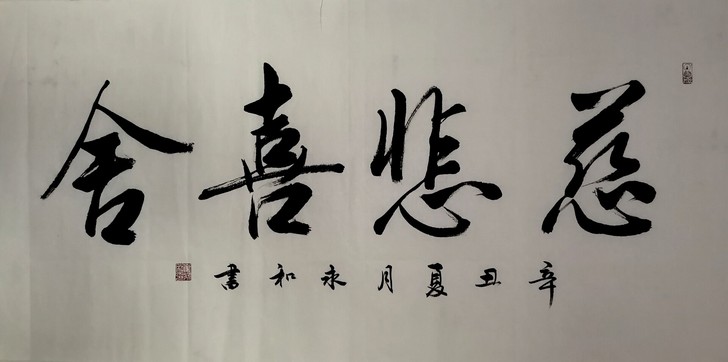 慈悲喜舍
辛丑夏月永和書